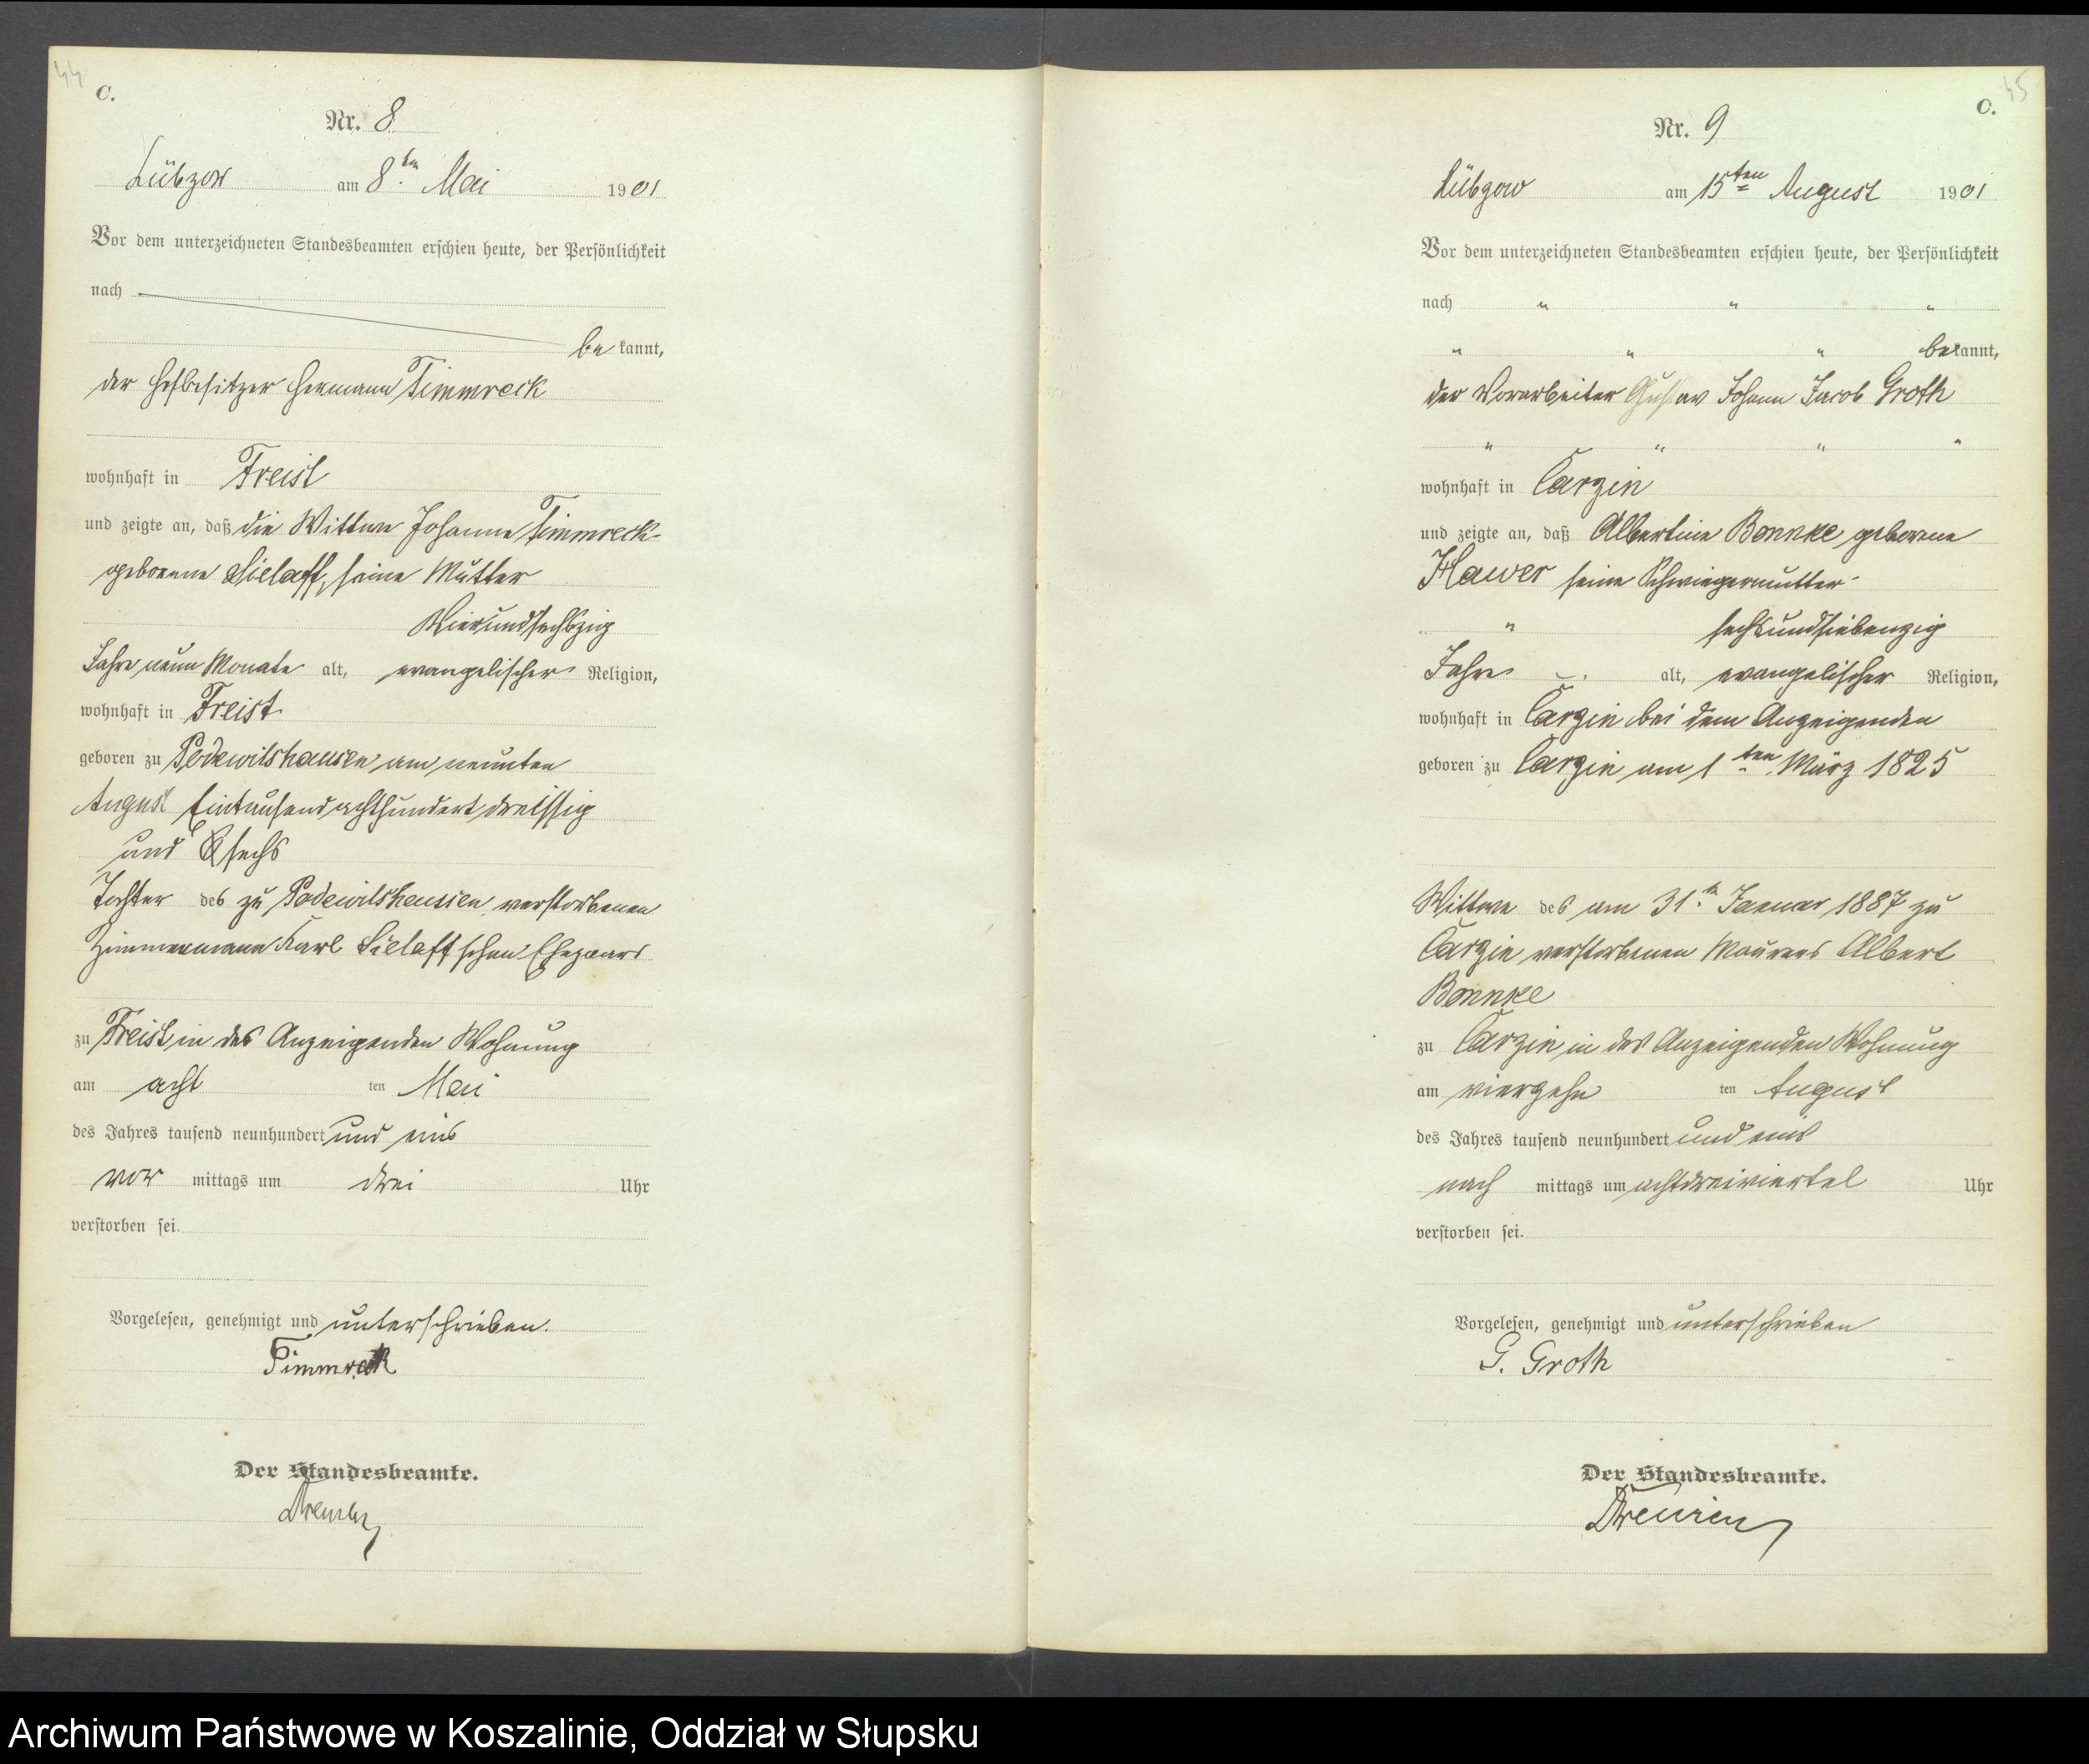 44
C.
Nr. 8
Lübzow am 8ten Mai 1901
Vor dem unterzeichneten Standesbeamten erschien heute, der Persönlichkeit
nach
be kannt,
der Hofbesitzer Hermann Timmreck
wohnhaft in Freist
und zeigte an, daß die Wittwe Johanne Timmreck
geborene Sielaff, seine Mutter
Vierundsechszig
Jahre neun Monate alt, evangelischer Religion,
wohnhaft in Freist
geboren zu Podewilshausen am neunten
August Eintausend achthundert dreissig
und sechs
Tochter des zu Podewilshausen verstorbenen
Zimmermann Karl Sielaff schen Ehepaars
zu Freist in des Anzeigenden Wohnung
am acht ten Mai
des Jahres tausend neunhundert und eins
vor mittags um drei Uhr
verstorben sei.
Vorgelesen, genehmigt und unterschrieben.
Timmreck
Der Standesbeamte.
45
C.
Nr. 9
Lübzow am 15ten August 1901
Vor dem unterzeichneten Standesbeamten erschien heute, der Persönlichkeit
nach " " "
" " " bekannt,
der Vorarbeiter Gustav Johann Jacob Groth
" " " "
wohnhaft in Carzin
und zeigte an, daß Albertine Bonnke geborene
Hawer seine Schwiegermutter
" sechsundsiebenzig
Jahre alt, evangelischer Religion,
wohnhaft in Carzin bei dem Anzeigenden
geboren zu Carzin am 1ten März 1825
Wittwe des am 31ten Januar 1887 zu
Carzin verstorbenen Maurers Albert
Bonnke
zu Carzin in des Anzeigenden Wohnung
am vierzehn ten August
des Jahres tausend neunhundert und eins
nach mittags um achtdreiviertel Uhr
verstorben sei.
Vorgelesen, genehmigt und unterschrieben
G. Groth
Der Standesbeamte.
Archiwum Państwowe w Koszalinie, Oddział w Słupsku